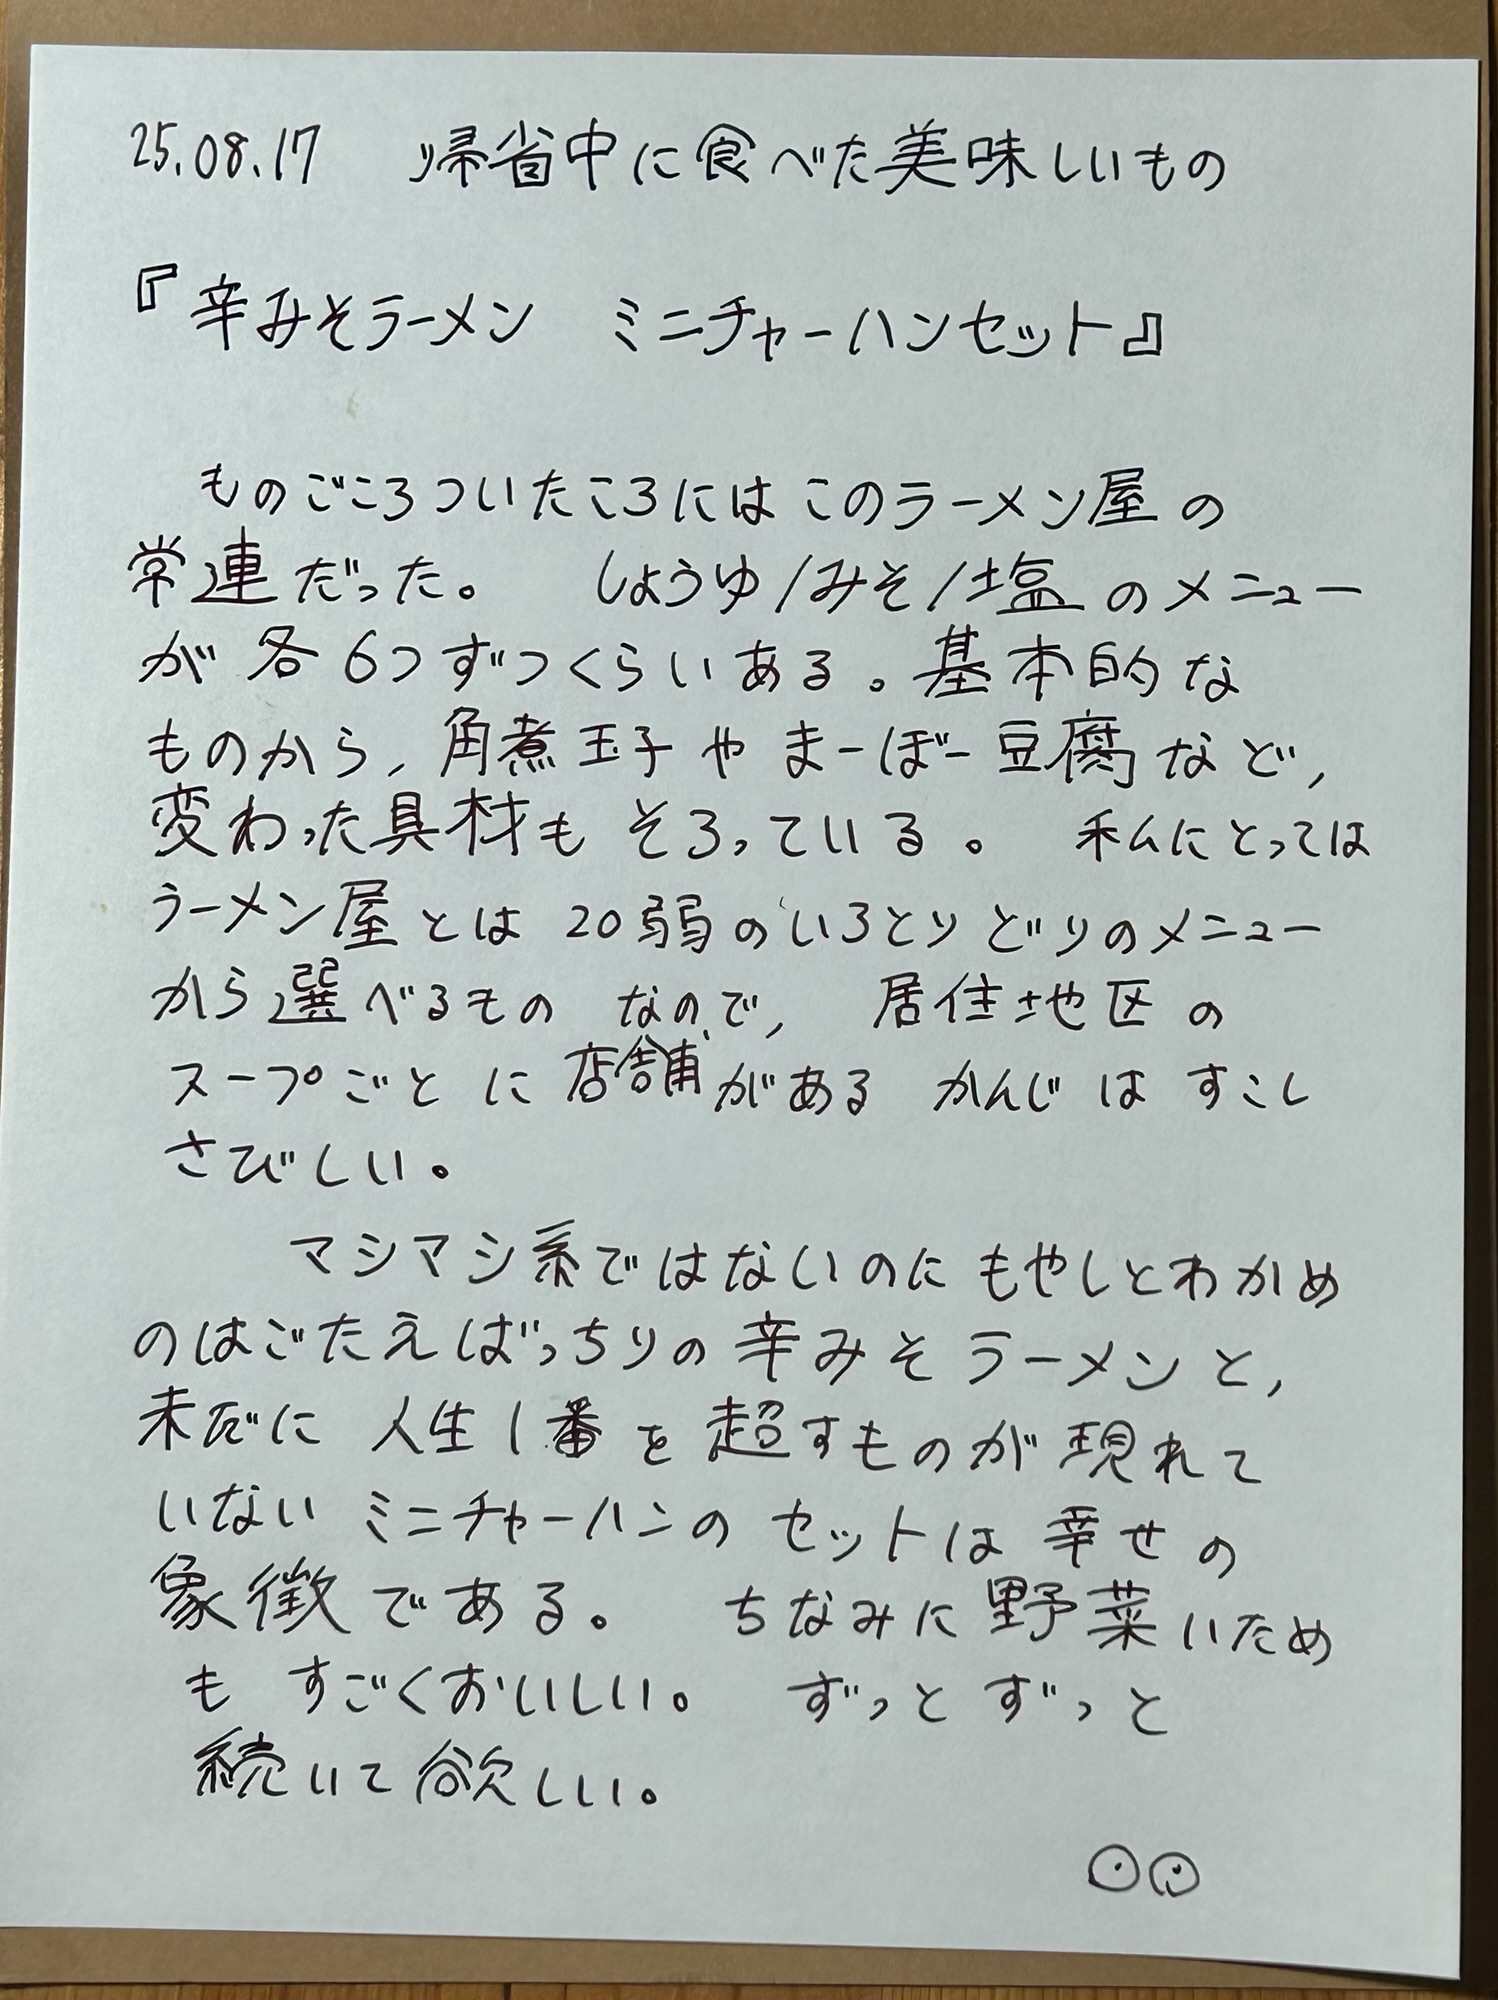 25.08.17 帰省中に食べた美味しいもの
『辛みそラーメン ミニチャーハンセット』
ものごころついたころにはこのラーメン屋の
常連だった。 しょうゆ/みそ/塩のメニュー
が各6つずつくらいある。基本的な
ものから、角煮玉子やまーぼー豆腐など、
変わった具材もそろっている。 私にとっては
ラーメン屋とは20弱のいろとりどりのメニュー
から選べるものなので、 居住地区の
スープごとに店舗がある かんじは すこし
さびしい。
マシマシ系ではないのにもやしとわかめ
のはごたえばっちりの辛みそラーメンと、
未だに人生1番を超すものが現れて
いないミニチャーハンのセットは幸せの
象徴である。 ちなみに野菜いため
も すごくおいしい。 ずっとずっと
続いて欲しい。